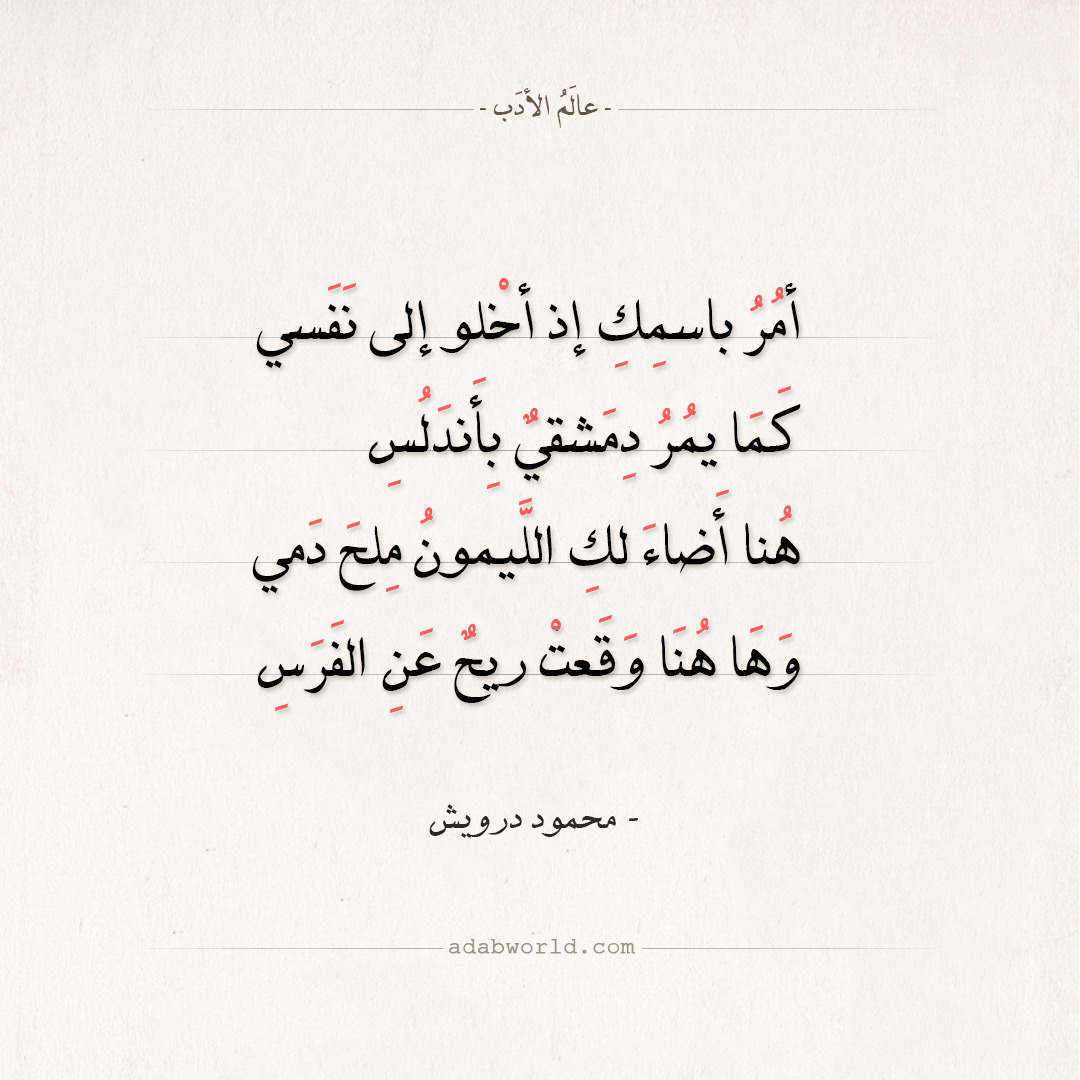 - عالَمُ الأدَب -
أمُرُ باسمِكِ إذ أخْلو إلى نَفَسي
كَمَا يمُرُ دِمَشقيٌ بِأَندَلُسِ
هُنا أَضاءَ لكِ اللَّيمونُ مِلحَ دَمي
وَهَا هُنَا وَقَعتْ ريحٌ عَنِ الفَرَسِ
- محمود درويش
adabworld.com